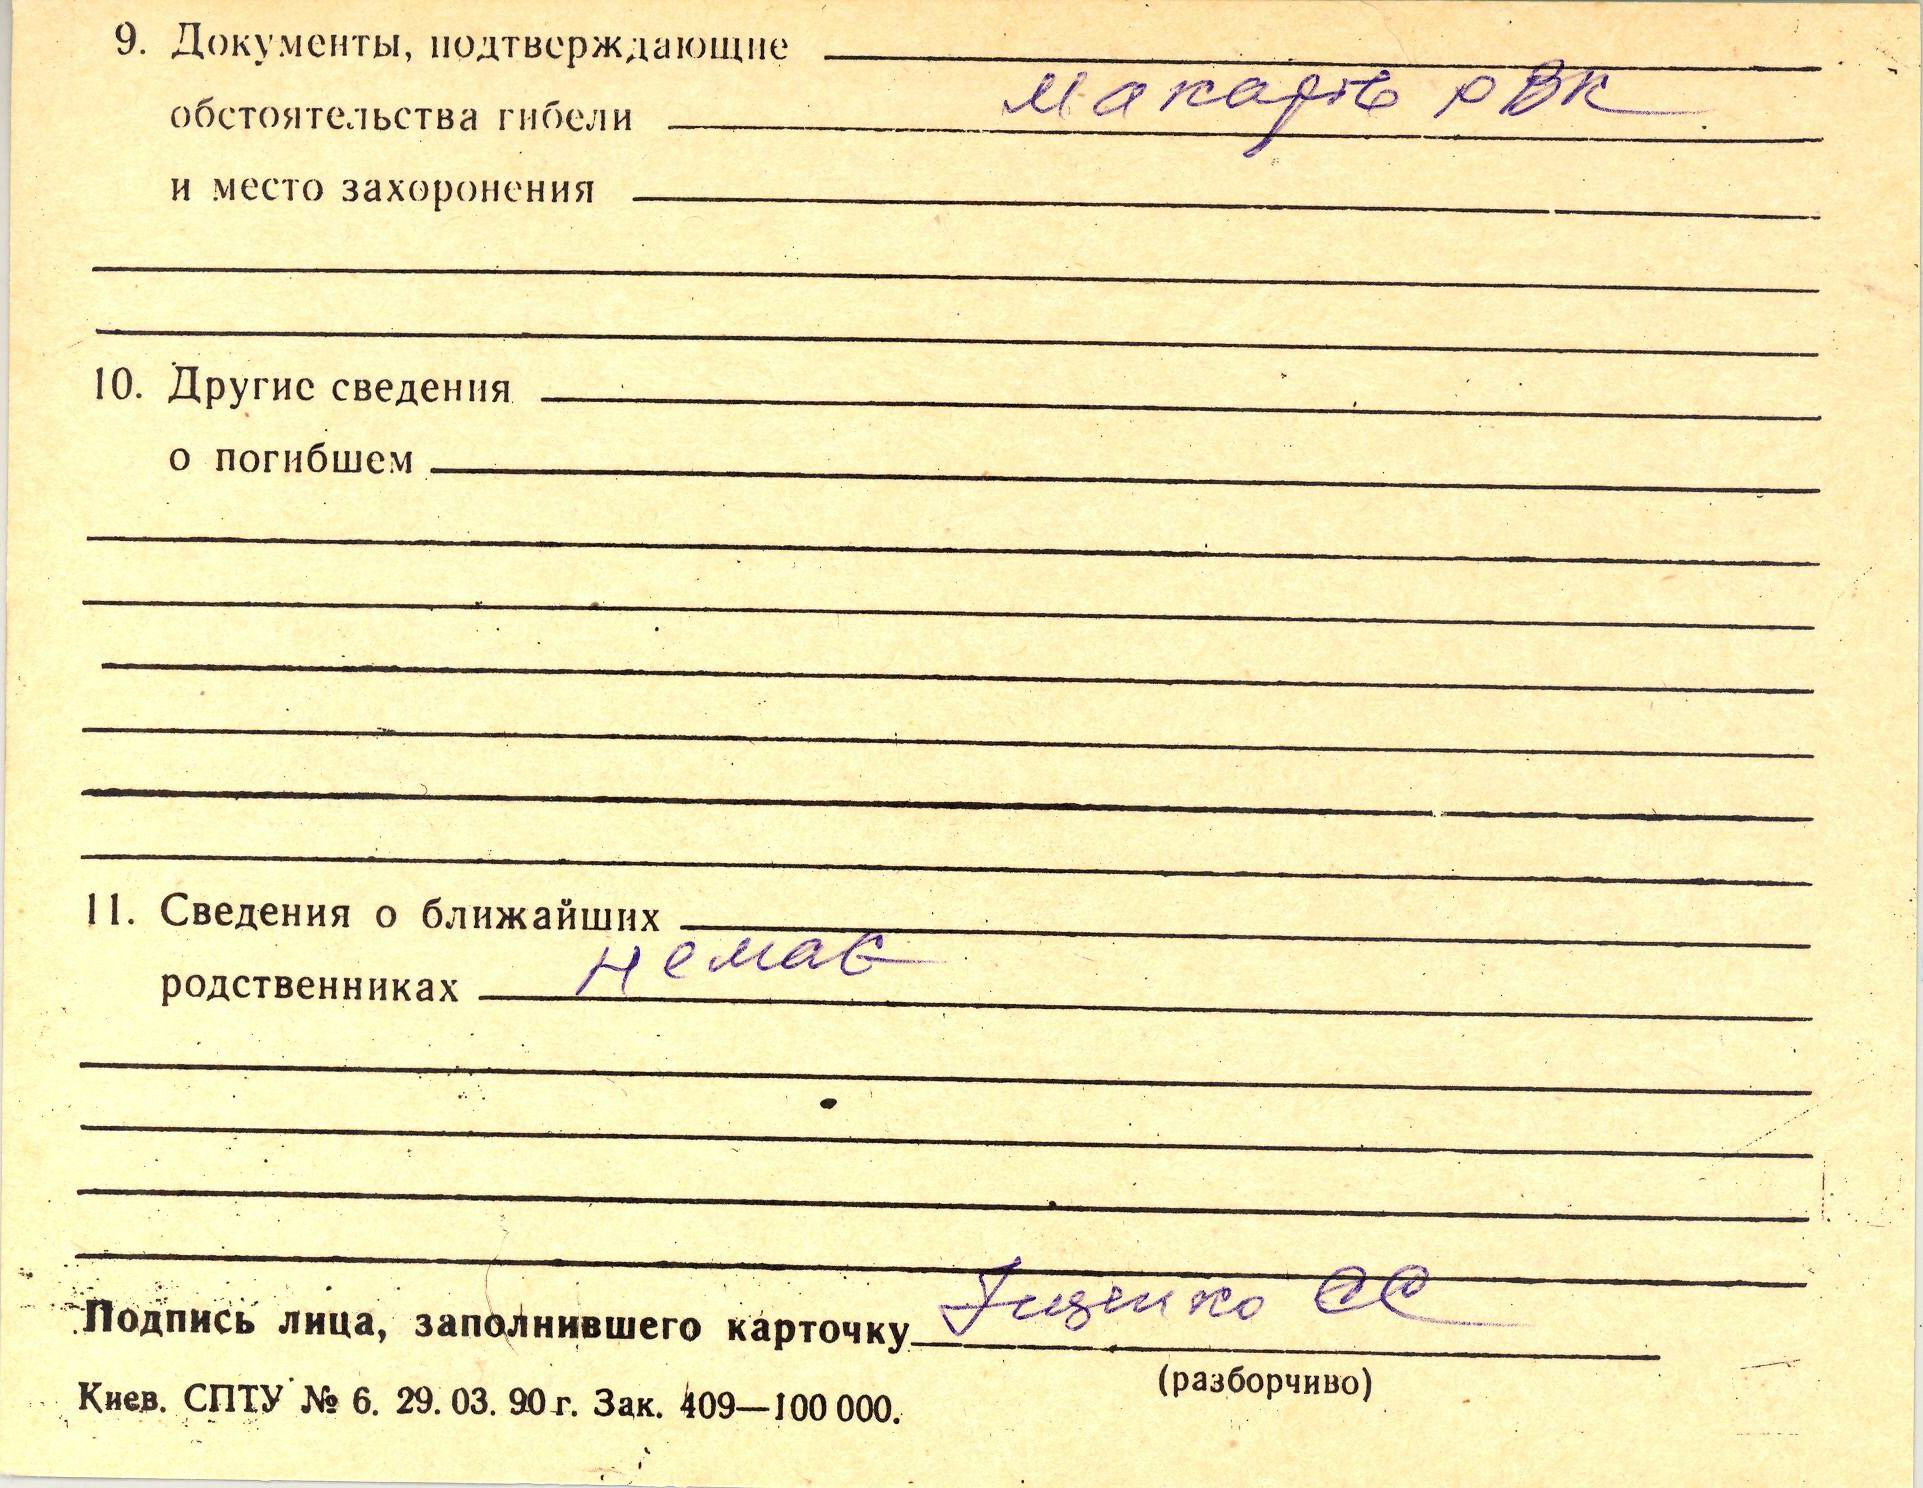 9. Документы, подтверждающие
Макарів РВК
обстоятельства гибели
и место захоронения
10. Другие сведения
о погибшем
11. Сведения о ближайших
родственниках немає
Подпись лица, заполнившего карточку Іщенко СС
(разборчиво)
Киев. СПТУ № 6. 29. 03. 90 г. Зак. 409—100 000.